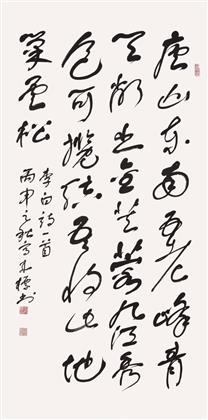 庐山东南五老峰青
天削出金芙蓉九江秀
色可揽结吾将此地
巢云松
李白诗一首
丙申之秋